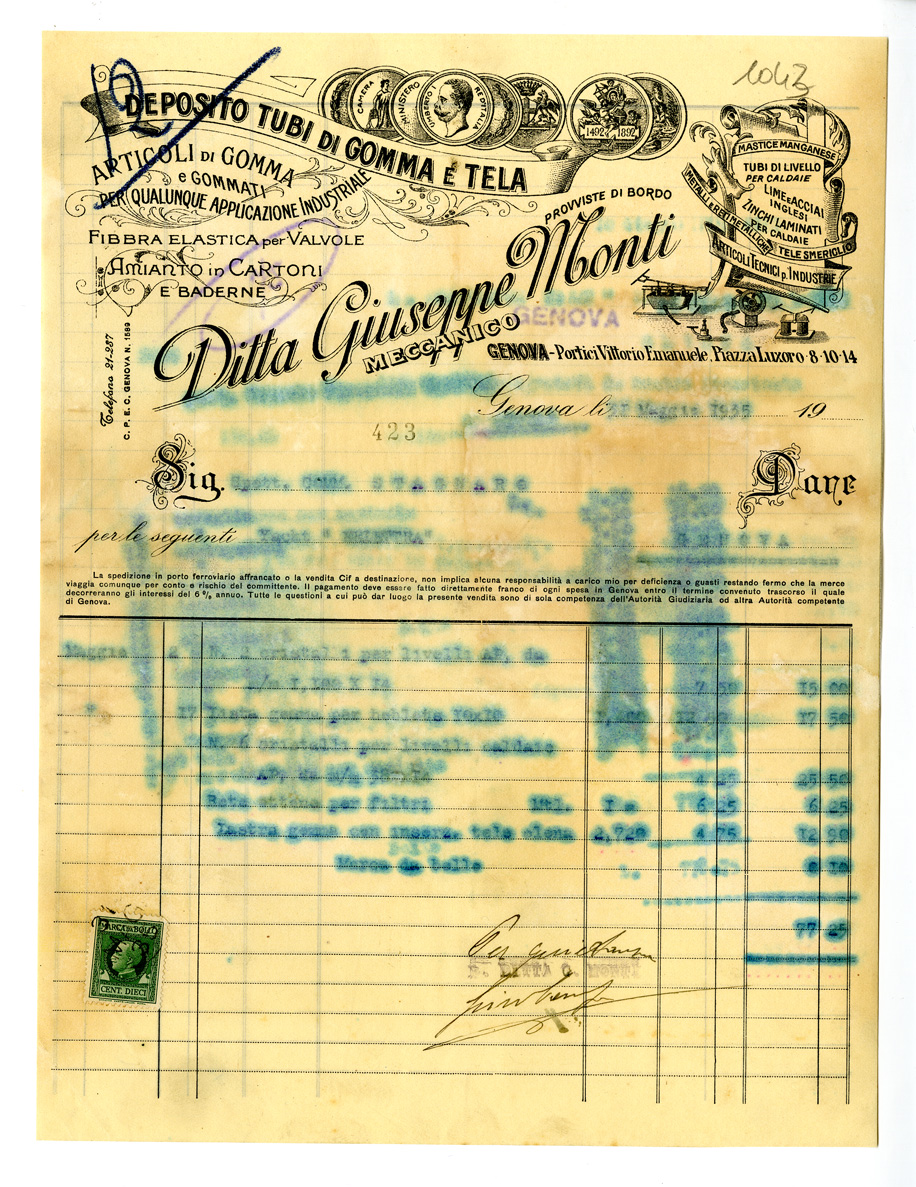 12
1043
DEPOSITO TUBI DI GOMMA E TELA
CAMERA
MINISTERO
UMBERTO I
RE D'ITALIA
1492 1892
ARTICOLI DI GOMMA
E GOMMATI
PER QUALUNQUE APPLICAZIONE INDUSTRIALE
FIBBRA ELASTICA per VALVOLE
AMIANTO in CARTONI
E BADERNE
MASTICE MANGANESE
TUBI DI LIVELLO
PER CALDAIE
LIME E ACCIAI
INGLESI
ZINCHI LAMINATI
PER CALDAIE
METALLI E RETI METALLICHE
TELE SMERIGLIO
ARTICOLI TECNICI p. INDUSTRIE
PROVVISTE DI BORDO
Ditta Giuseppe Monti
MECCANICO
GENOVA
GENOVA - Portici Vittorio Emanuele, Piazza Luzoro - 8-10-14
Telefono 21-287
C. P. E. C. GENOVA N. 1589
Genova li Maggio 1935 19
423
Sig. Spett. STAGNARO Dare
per le seguenti Yacht GENOVA
La spedizione in porto ferroviario affrancato o la vendita Cif a destinazione, non implica alcuna responsabilità a carico mio per deficienza o guasti restando fermo che la merce
viaggia comunque per conto e rischio del committente. Il pagamento deve essere fatto direttamente franco di ogni spesa in Genova entro il termine convenuto trascorso il quale
decorreranno gli interessi del 6 %, annuo. Tutte le questioni a cui può dar luogo la presente vendita sono di sola competenza dell'Autorità Giudiziaria od altra Autorità competente
di Genova.
Maggio cristalli per livello AP, da
7,50 15 00
17 Lastra gomma per 17 50
N. 6 cristalli per livello caldaie
25 50
Rete ottone per filtri Mtl. 6,25 6 25
Lastra gomma con tela 2,720 4,75 12 90
Marca da bollo 0 10
77 25
Per quietanza
MARCA DA BOLLO
CENT. DIECI